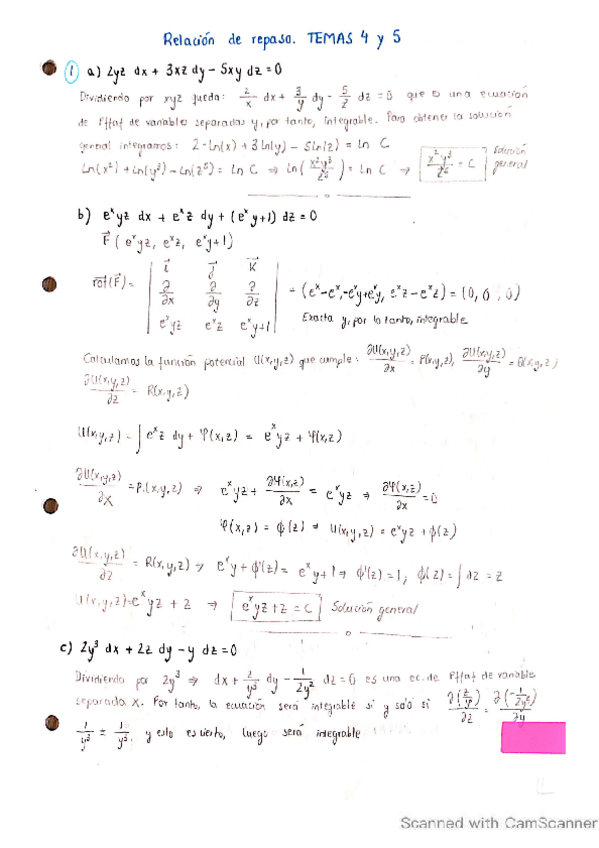 Relación de repaso. TEMAS 4 y 5
1 a) 2yz dx + 3xz dy - 5xy dz = 0
Dividiendo por xyz queda: 2/x dx + 3/y dy - 5/z dz = 0 que es una ecuación
de Pffaf de variables separadas y, por tanto, integrable. Para obtener la solución
general integramos: 2·Ln(x) + 3 Ln(y) - 5Ln(z) = Ln C
Ln(x²) + Ln(y³) - Ln(z⁵) = Ln C ⇒ Ln(x²y³/z⁵) = Ln C ⇒ x²y³/z⁵ = C Solución general
b) eˣyz dx + eˣz dy + (eˣy+1) dz = 0
F⃗ (eˣyz, eˣz, eˣy+1)
rot(F⃗) = | i⃗ j⃗ k⃗ |
| ∂/∂x ∂/∂y ∂/∂z | = (eˣ-eˣ, -eˣy+eˣy, eˣz-eˣz) = (0, 0, 0)
| eˣyz eˣz eˣy+1 | Exacta y, por lo tanto, integrable
Calculamos la función potencial U(x,y,z) que cumple: ∂U(x,y,z)/∂x = P(x,y,z), ∂U(x,y,z)/∂y = Q(x,y,z)
∂U(x,y,z)/∂z = R(x,y,z)
U(x,y,z) = ∫ eˣz dy + Ψ(x,z) = eˣyz + Ψ(x,z)
∂U(x,y,z)/∂x = P(x,y,z) ⇒ eˣyz + ∂Ψ(x,z)/∂x = eˣyz ⇒ ∂Ψ(x,z)/∂x = 0
Ψ(x,z) = ϕ(z) ⇒ U(x,y,z) = eˣyz + ϕ(z)
∂U(x,y,z)/∂z = R(x,y,z) ⇒ eˣy + ϕ'(z) = eˣy+1 ⇒ ϕ'(z) = 1, ϕ(z) = ∫ dz = z
U(x,y,z) = eˣyz + z ⇒ eˣyz + z = C Solución general
c) 2y³ dx + 2z dy - y dz = 0
Dividiendo por 2y³ ⇒ dx + z/y³ dy - 1/2y² dz = 0 es una ec. de Pffaf de variable
separada x. Por tanto, la ecuación será integrable si y sólo si ∂(z/y³)/∂z = ∂(-1/2y²)/∂y
1/y³ = 1/y³. y esto es cierto, luego será integrable
Scanned with CamScanner